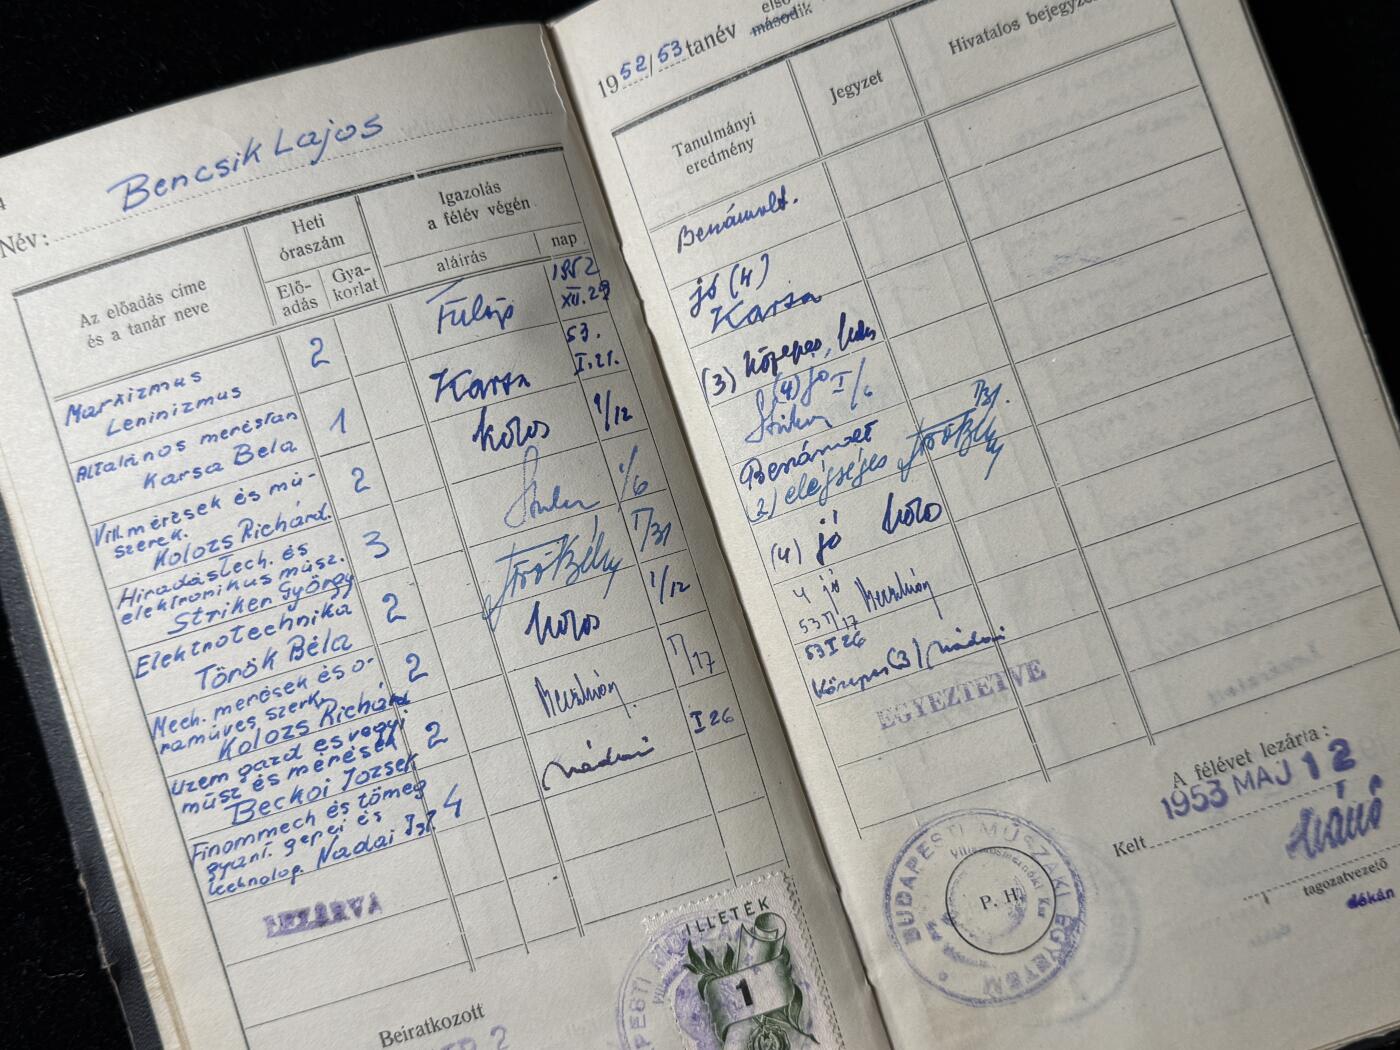 4
Név: Bencsik Lajos
Az előadás címe
és a tanár neve
Heti
óraszám
Elő-
adás
Gya-
korlat
Igazolás
a félév végén
aláírás
nap
Marxizmus
Leninizmus
2
Fülöp
1952
XII. 29
Általános meréstan
Karsa Bela
1
Karsa
53.
I. 21.
Vill. mérések és mű-
szerek.
Kolozs Richárd.
2
1/12
Hiradástech. és
elektronikus műsz.
Striker György
3
1/6
Elektrotechnika
Török Béla
2
Török Béla
I/31
Mech. merések és o-
raműves szerk.
Kolozs Richárd
2
1/12
Üzem gazd és vegyi
műsz és mérések
Beckoi Jozsef
2
I/17
Finommech és tömeg
gyart. gepei és
technolog. Nadai
4
Nádai
I 26
LEZÁRVA
Beiratkozott
2
ILLETÉK
1
1952/53 tanév első
második
Tanulmányi
eredmény
Jegyzet
Hivatalos bejegyzés
Beszámolt.
jó (4)
Karsa
(3) közepes,
(4) jó I/6
Beszámolt
(2) elégséges Török Béla I/31.
(4) jó
4 jó
53 I/17
53 I 26
Közepes (3) Nádai
EGYEZTETVE
A félévet lezárta:
1953 MÁJ 12
Kelt
tagozatvezető
dékán
BUDAPESTI MŰSZAKI EGYETEM
P. H.